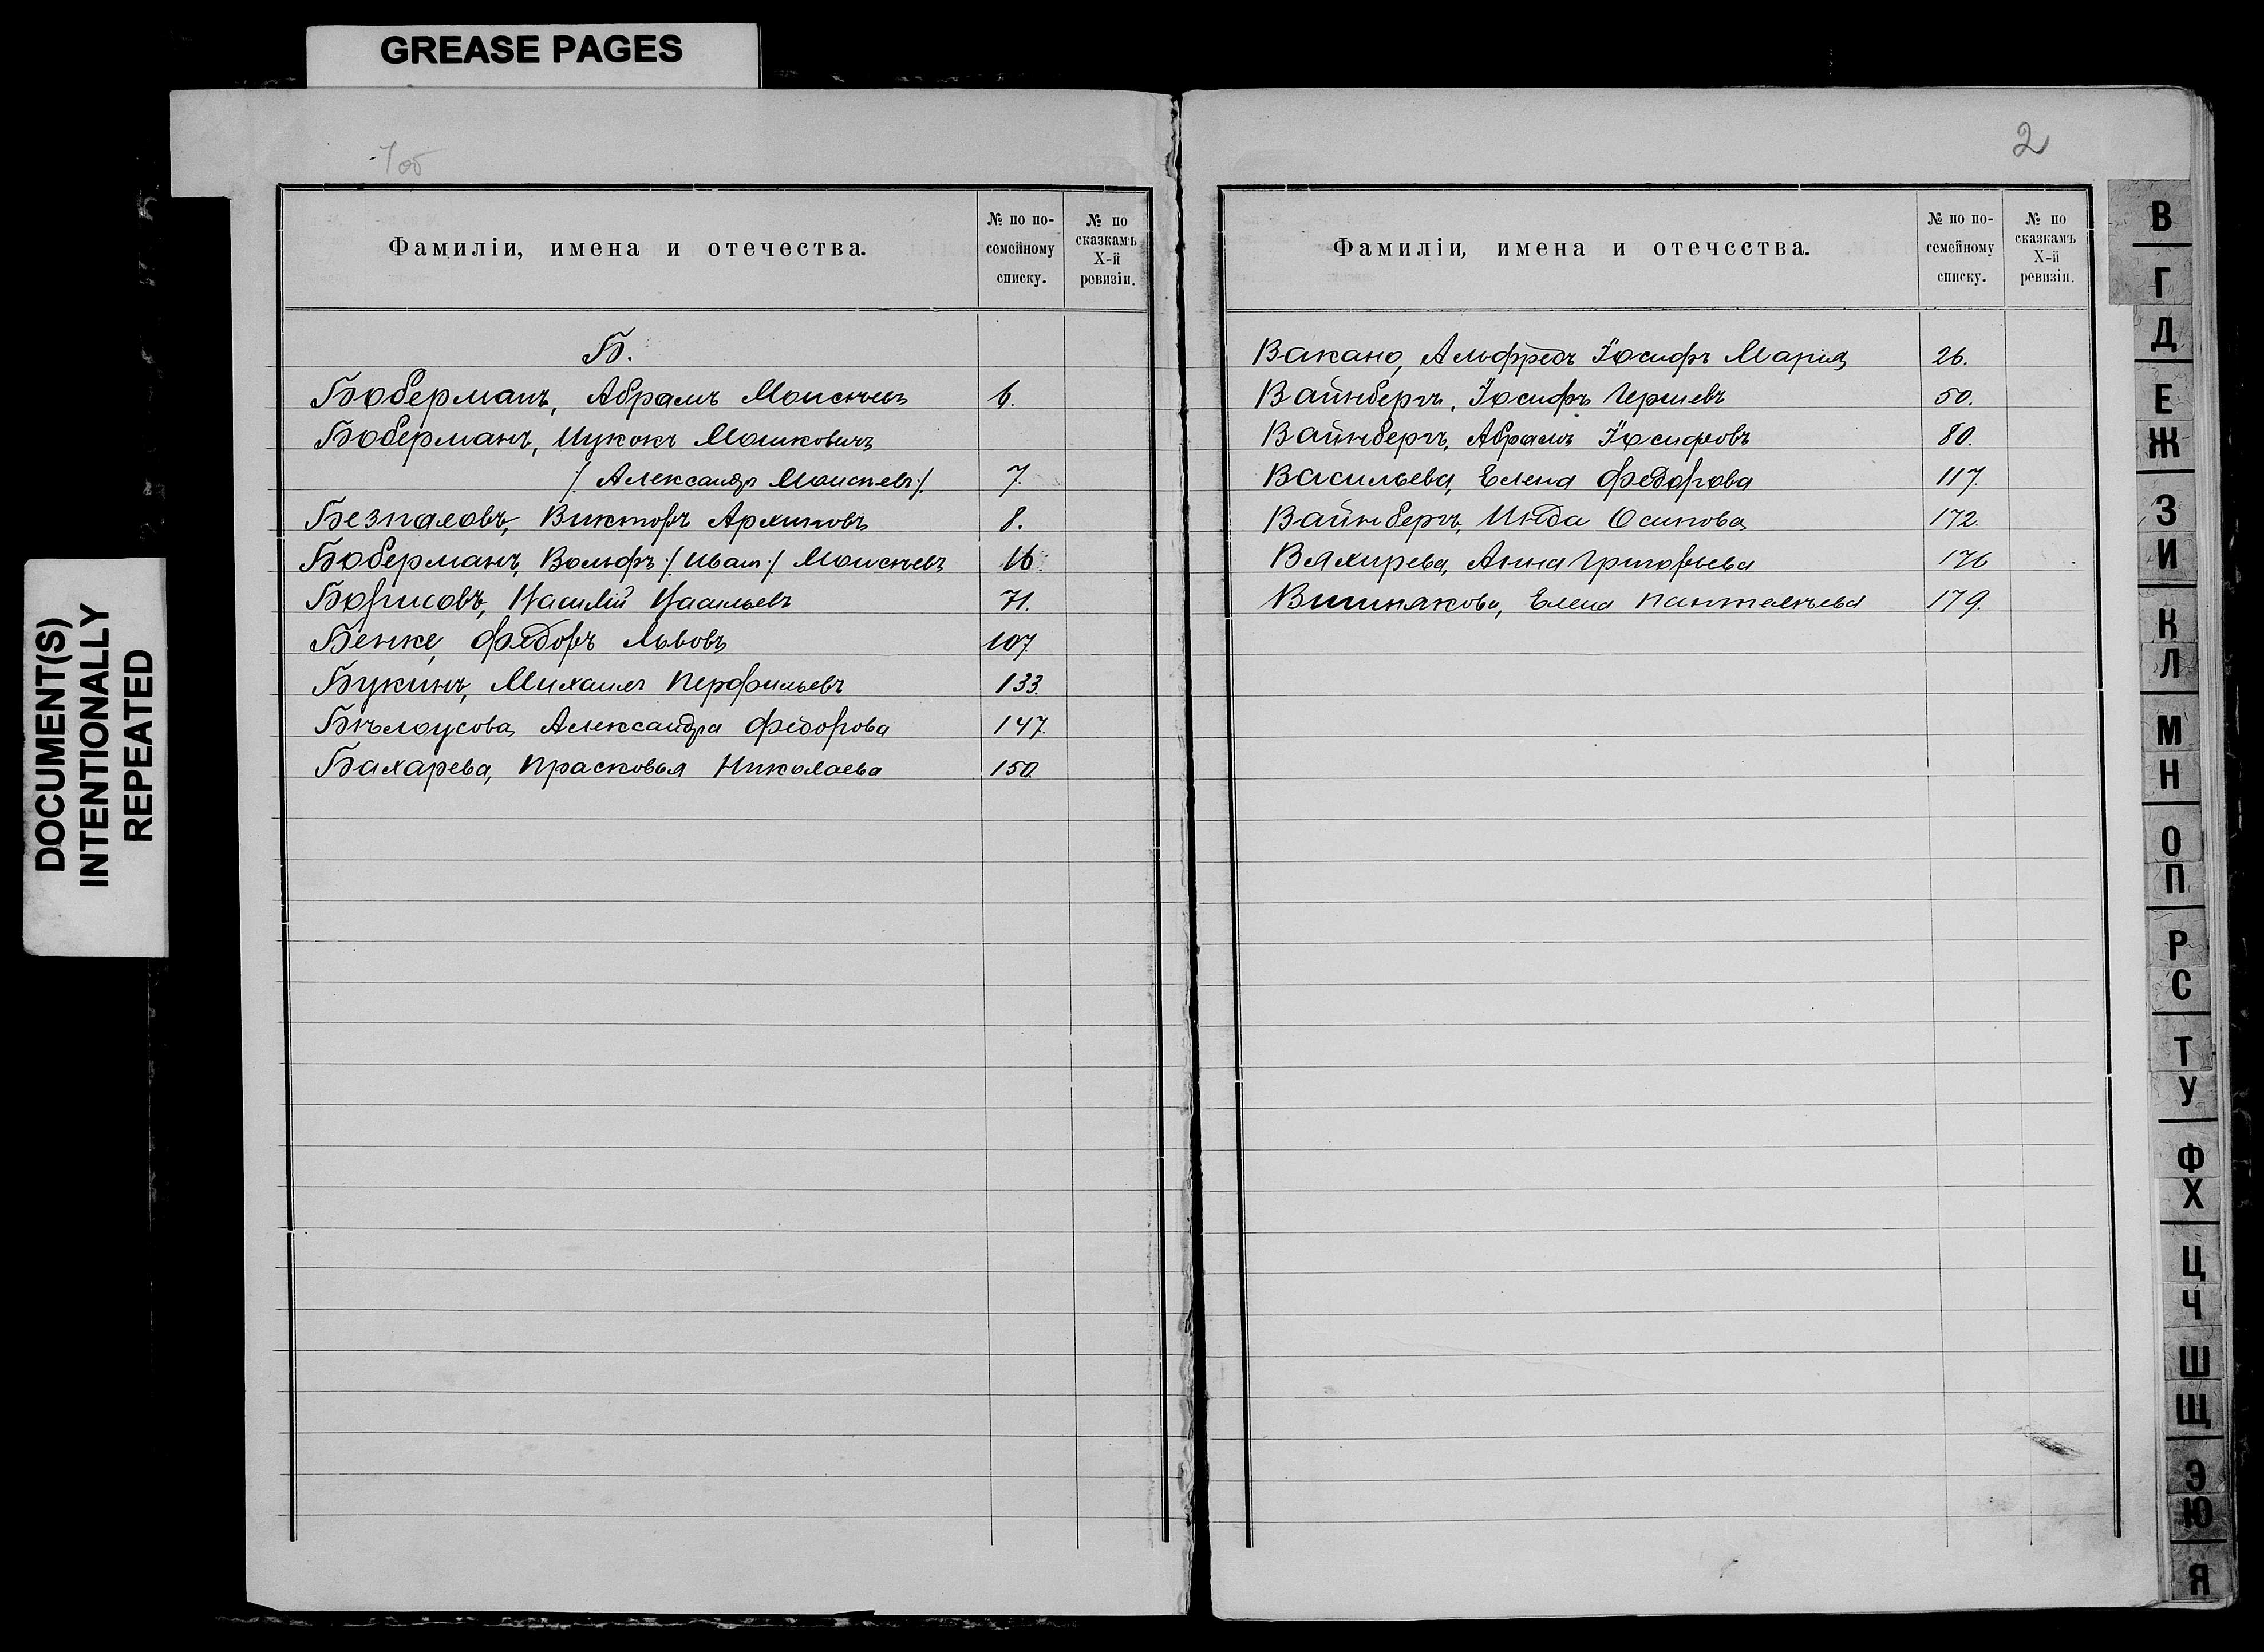 GREASE PAGES
DOCUMENT(S)
INTENTIONALLY
REPEATED
1об
Фамиліи, имена и отечества.
№ по по-
семейному
списку.
№ по
сказкамъ
X-й
ревизіи.
Б.
Боберманъ, Абрамъ Моисѣевъ 6.
Боберманъ, Ицукокъ Мошковичъ
/: Александръ Моисѣевъ :/ 7.
Безпаловъ, Викторъ Архиповъ 8.
Боберманъ, Вольфъ /: Иванъ :/ Моисѣевъ 16.
Борисовъ, Василій Васильевъ 71.
Бенке, Федоръ Львовъ 107.
Букинъ, Михаилъ Перфильевъ 133.
Бѣлоусова, Александра Федорова 147.
Бахарева, Прасковья Николаева 150.
2
Фамиліи, имена и отечества.
№ по по-
семейному
списку.
№ по
сказкамъ
X-й
ревизіи.
Вакано, Альфредъ Іосифъ Марія 26.
Вайнбергъ, Іосифъ Гершевъ 50.
Вайнбергъ, Абрамъ Іосифовъ 80.
Васильева, Елена Федорова 117.
Вайнбергъ, Инда Осипова 172.
Вяхирева, Анна Григорьева 176
Вишнякова, Елена Пантелѣева 179.
В
Г
Д
Е
Ж
З
И
К
Л
М
Н
О
П
Р
С
Т
У
Ф
Х
Ц
Ч
Ш
Щ
Э
Ю
Я